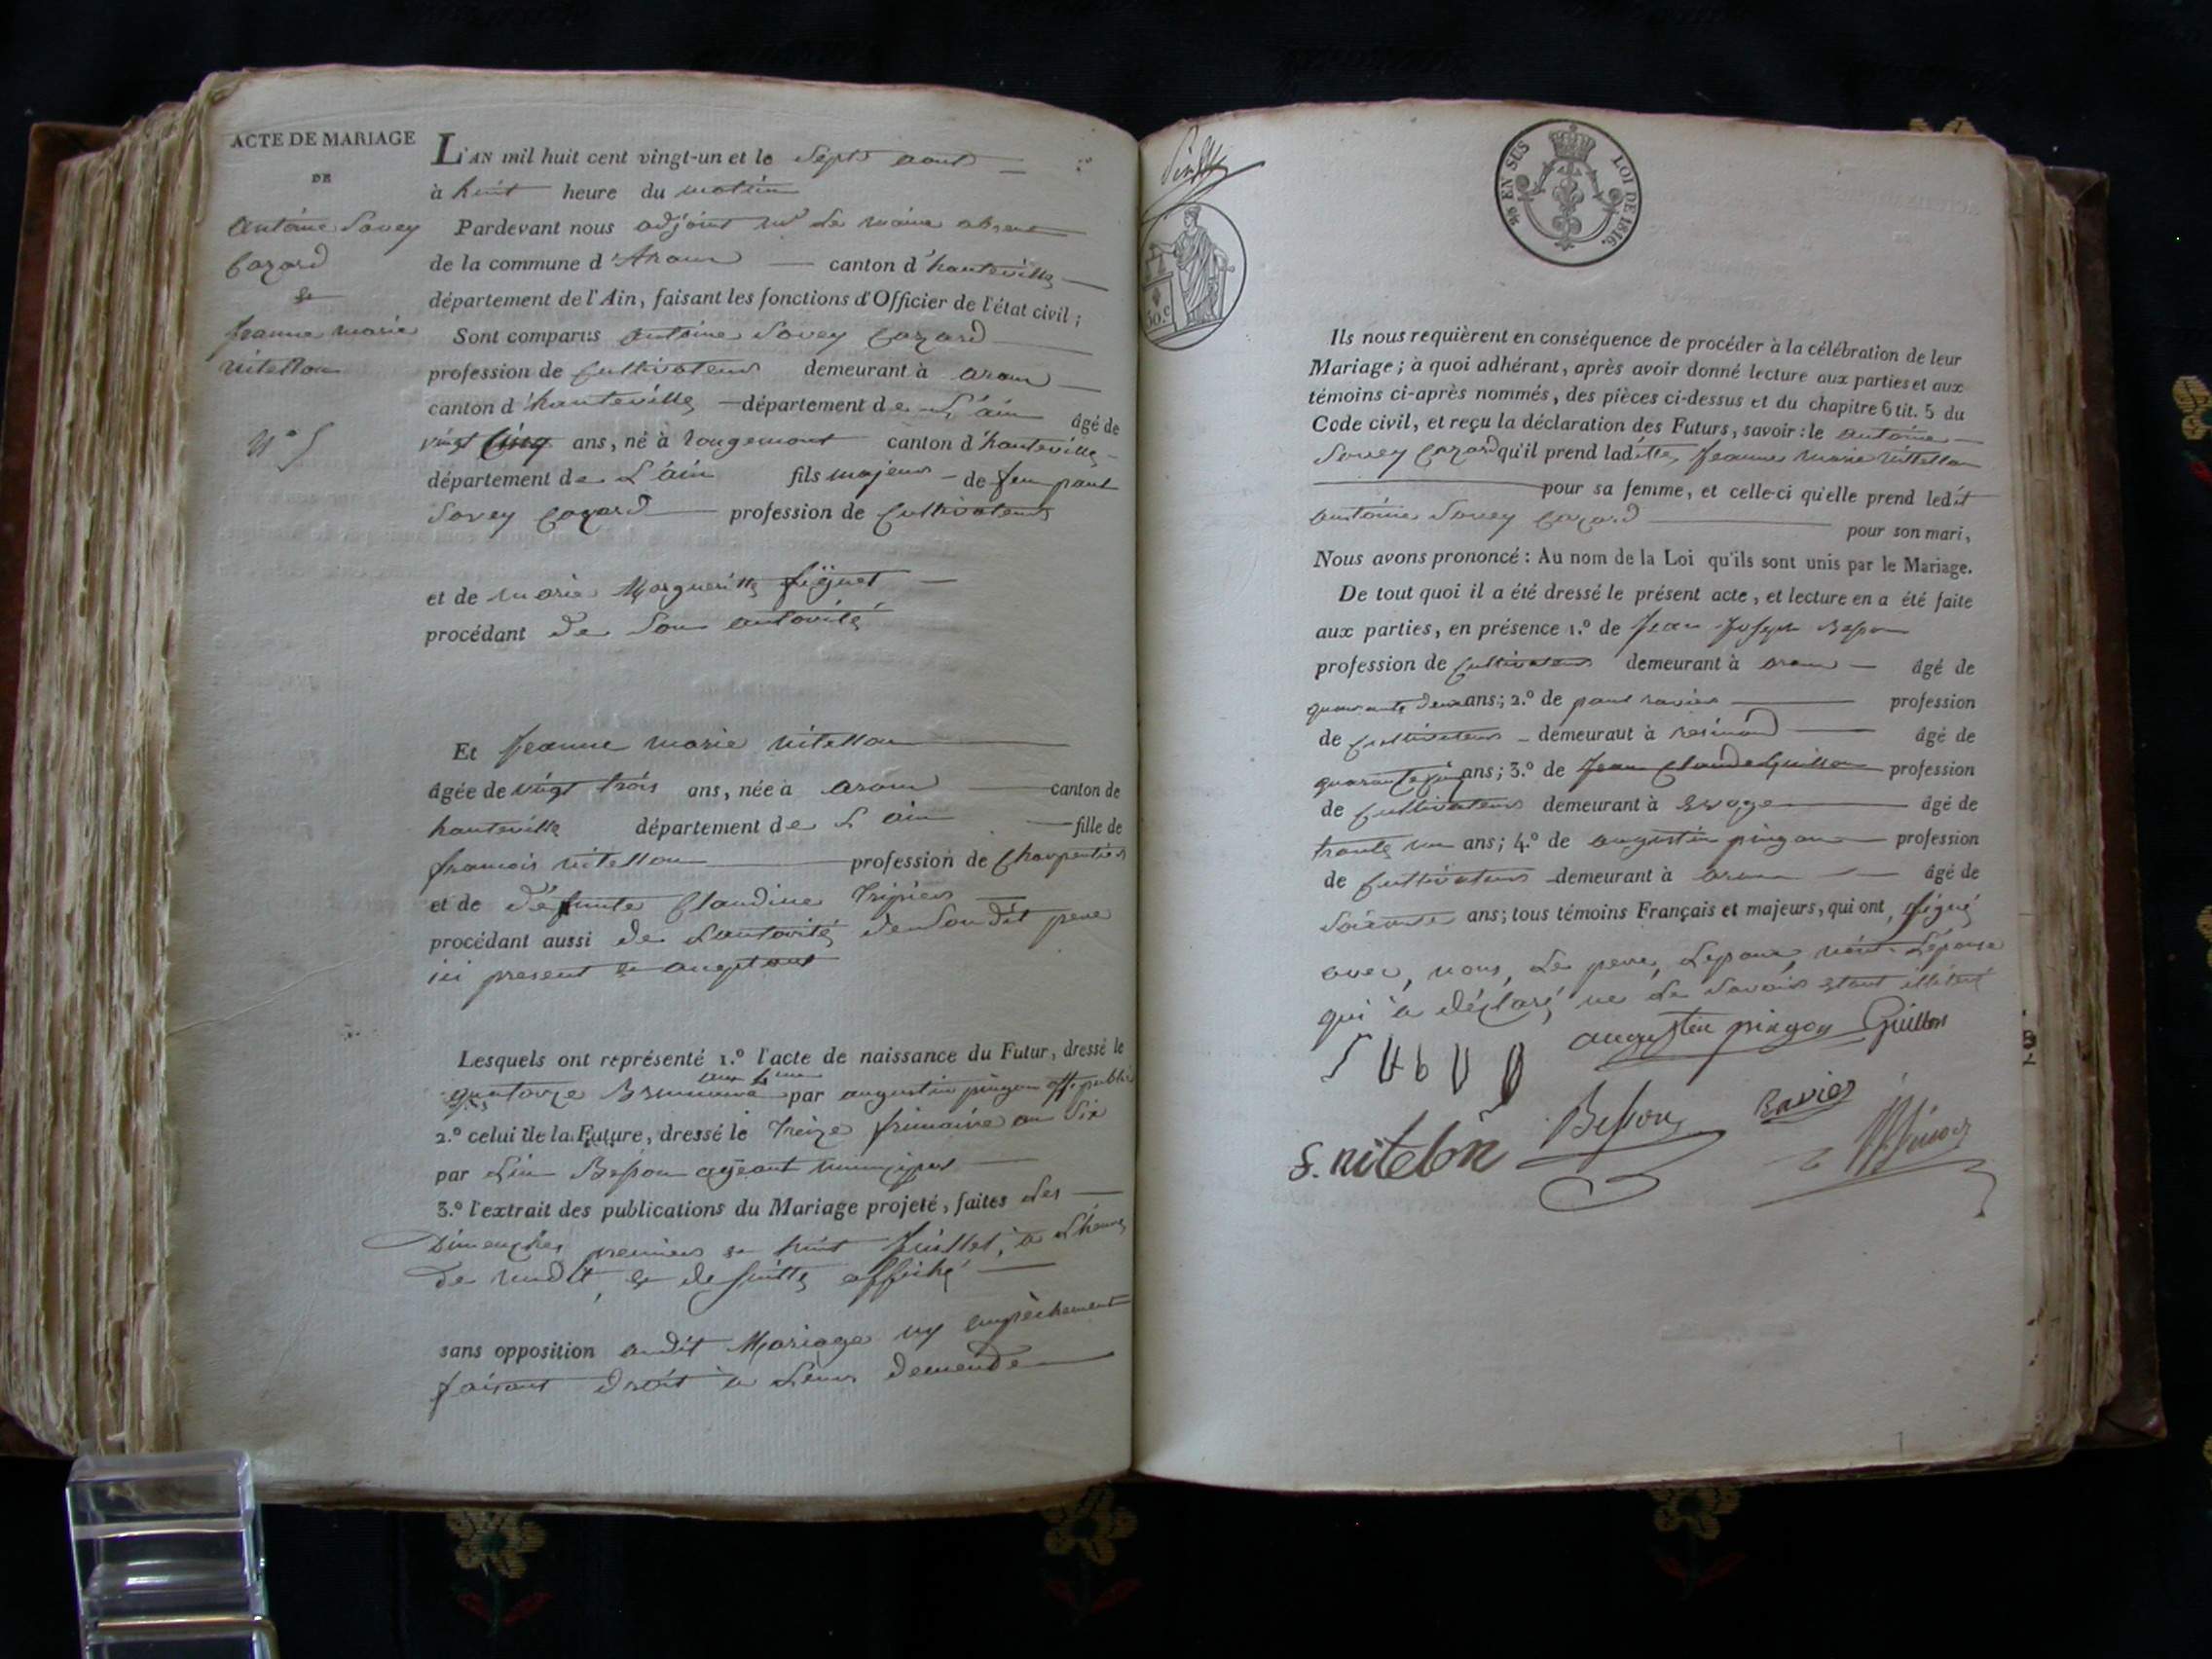 ACTE DE MARIAGE
DE
Antoine Savey
Cazard
&
Jeanne marie
nitellon
N° 5
L'AN mil huit cent vingt-un et le Sept aout
à huit heure du matin
Pardevant nous adjoint mr le maire absent
de la commune d'Aranc canton d'hauteville
département de l'Ain, faisant les fonctions d'Officier de l'état civil;
Sont comparus antoine Savey Cazard
profession de Cultivateur demeurant à aranc
canton d'hauteville département de L'ain âgé de
vingt cinq ans, né à rougemont canton d'hauteville
département de L'ain fils majeur de feu paul
Savey Cazard profession de Cultivateur
et de marie Margueritte
procédant de Son autorité
Et Jeanne marie nitellon
âgée de vingt trois ans, née à aranc canton de
hauteville département de L'ain fille de
francois nitellon profession de Charpentier
et de défunte Claudine Tripier
procédant aussi de Lautorité de Son dit pere
ici present et
Lesquels ont représenté 1.° l'acte de naissance du Futur, dressé le
quatorze Brumaire par augustin pingon off. public
2.° celui de la Future, dressé le treize frimaire an Six
par Besson ageant municipal
3.° l'extrait des publications du Mariage projeté, faites Les
Dimenches premier et huit Juillet, a Lheure
de midit, et de suitte affiché
sans opposition audit Mariage ny empèchement
faisant droit a Leur demende
50.c
EN SUS
LOI DE 1816.
Ils nous requièrent en conséquence de procéder à la célébration de leur
Mariage; à quoi adhérant, après avoir donné lecture aux parties et aux
témoins ci-après nommés, des pièces ci-dessus et du chapitre 6 tit. 5 du
Code civil, et reçu la déclaration des Futurs, savoir: le antoine
Savey Cazard qu'il prend ladítte Jeanne marie nitellon
pour sa femme, et celle-ci qu'elle prend ledit
antoine Savey Cazard pour son mari,
Nous avons prononcé: Au nom de la Loi qu'ils sont unis par le Mariage.
De tout quoi il a été dressé le présent acte, et lecture en a été faite
aux parties, en présence 1.° de Jean Joseph Besson
profession de Cultivateur demeurant à aranc âgé de
quarante deux ans; 2.° de paul ravier profession
de Cultivateur demeurant à résinand âgé de
quarante cinq ans; 3.° de Jean Claude Guillon profession
de Cultivateur demeurant à âgé de
trante un ans; 4.° de augustin pingon profession
de Cultivateur demeurant à aranc âgé de
Soixante ans; tous témoins Français et majeurs, qui ont signé
avec, nous, Le pere, Lepoux, non Lepouse
qui a déclaré ne Le Savoir etant
augustin pingon Guillon
S. nitelon Besson Ravier